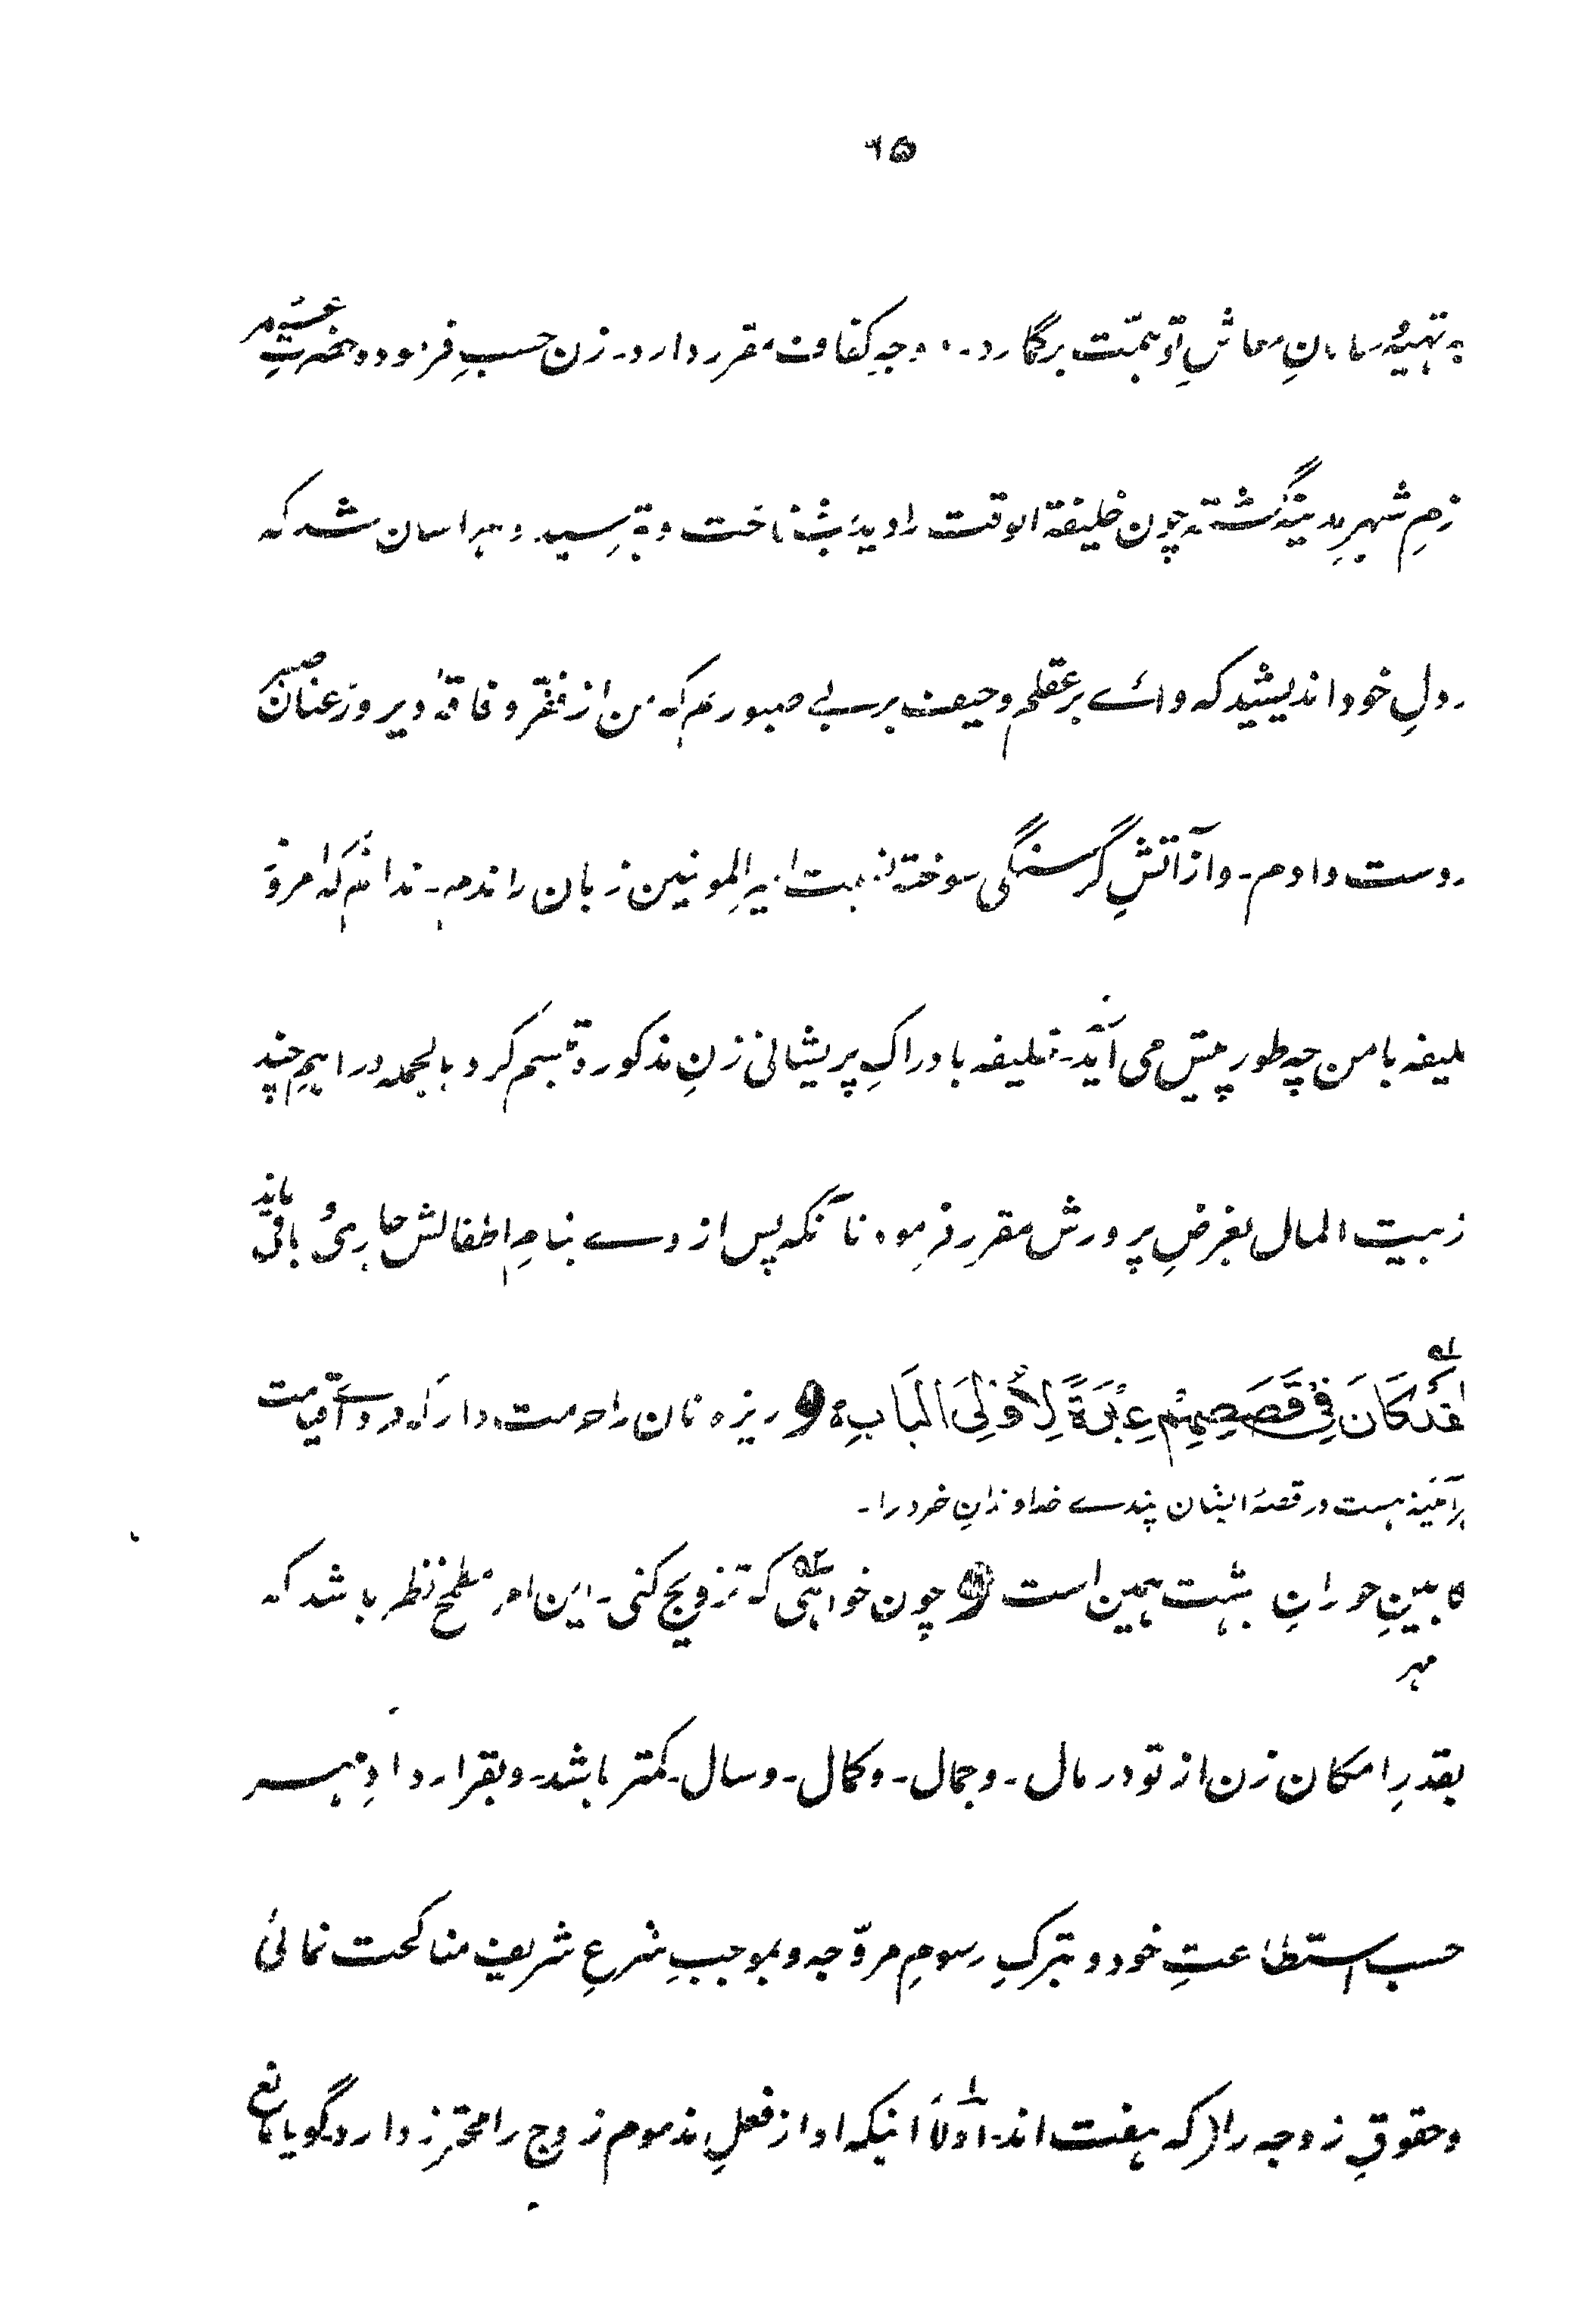 ۱۵
بہ تہیۂ سامانِ معاشِ تو ہمّت برگمارد۔ و وجہِ کفاف مقرر دارد۔ زن حسبِ فرمودہ حضرتِ عمرؓ
زمِ شہرِ مدینہ گشتہ چون خلیفۃ الوقت را دید بشناخت و بترسید و ہراسان شد کہ
ردلِ خود اندیشید کہ وائے بر عقلم و حیف بر بے صبوریم کہ من از فقر و فاقۂ دیروز عنان صبر
ز دست دادم۔ و از آتشِ گرسنگی سوختہ نسبت امیر المومنین زبان راندم۔ ندانم کہ امروز
لیفہ با من چہ طور پیش می آید۔ خلیفہ بادراکِ پریشانی زنِ مذکورہ تبسم کرد بالجملہ دراہمِ چند
ز بیت المال بغرضِ پرورش مقرر فرمود تا آنکہ پس از وے بنامِ اطفالش جاری و باقی ماند
لَقَدْ كَانَ فِيْ قَصَصِهِمْ عِبْرَةٌ لِأُولِى الْبَابِ ہ و ریزہ نان را حرمت دار کہ فرداے قیامت
ہر آئینہ ہست در قصۂ ایشان پندے خداوندانِ خرد را۔
ہ بینِ حورانِ بہشت ہمین است و چون خواہی کہ تزویج کنی۔ این امر مطمح نظر باشد کہ
مہر
بقدرِ امکان زن از تو در مال۔ و جمال۔ و کمال۔ و سال۔ کمتر باشد۔ و بقرار دادِ مہر
حسب استطاعتِ خود و بترکِ رسومِ مروّجہ و بموجبِ شرعِ شریف مناکحت نمائی
و حقوقِ زوجہ را (کہ ہفت اند۔ اوّلاً اینکہ او از فعلِ مذموم زوج را محترز دارد گویا مانع